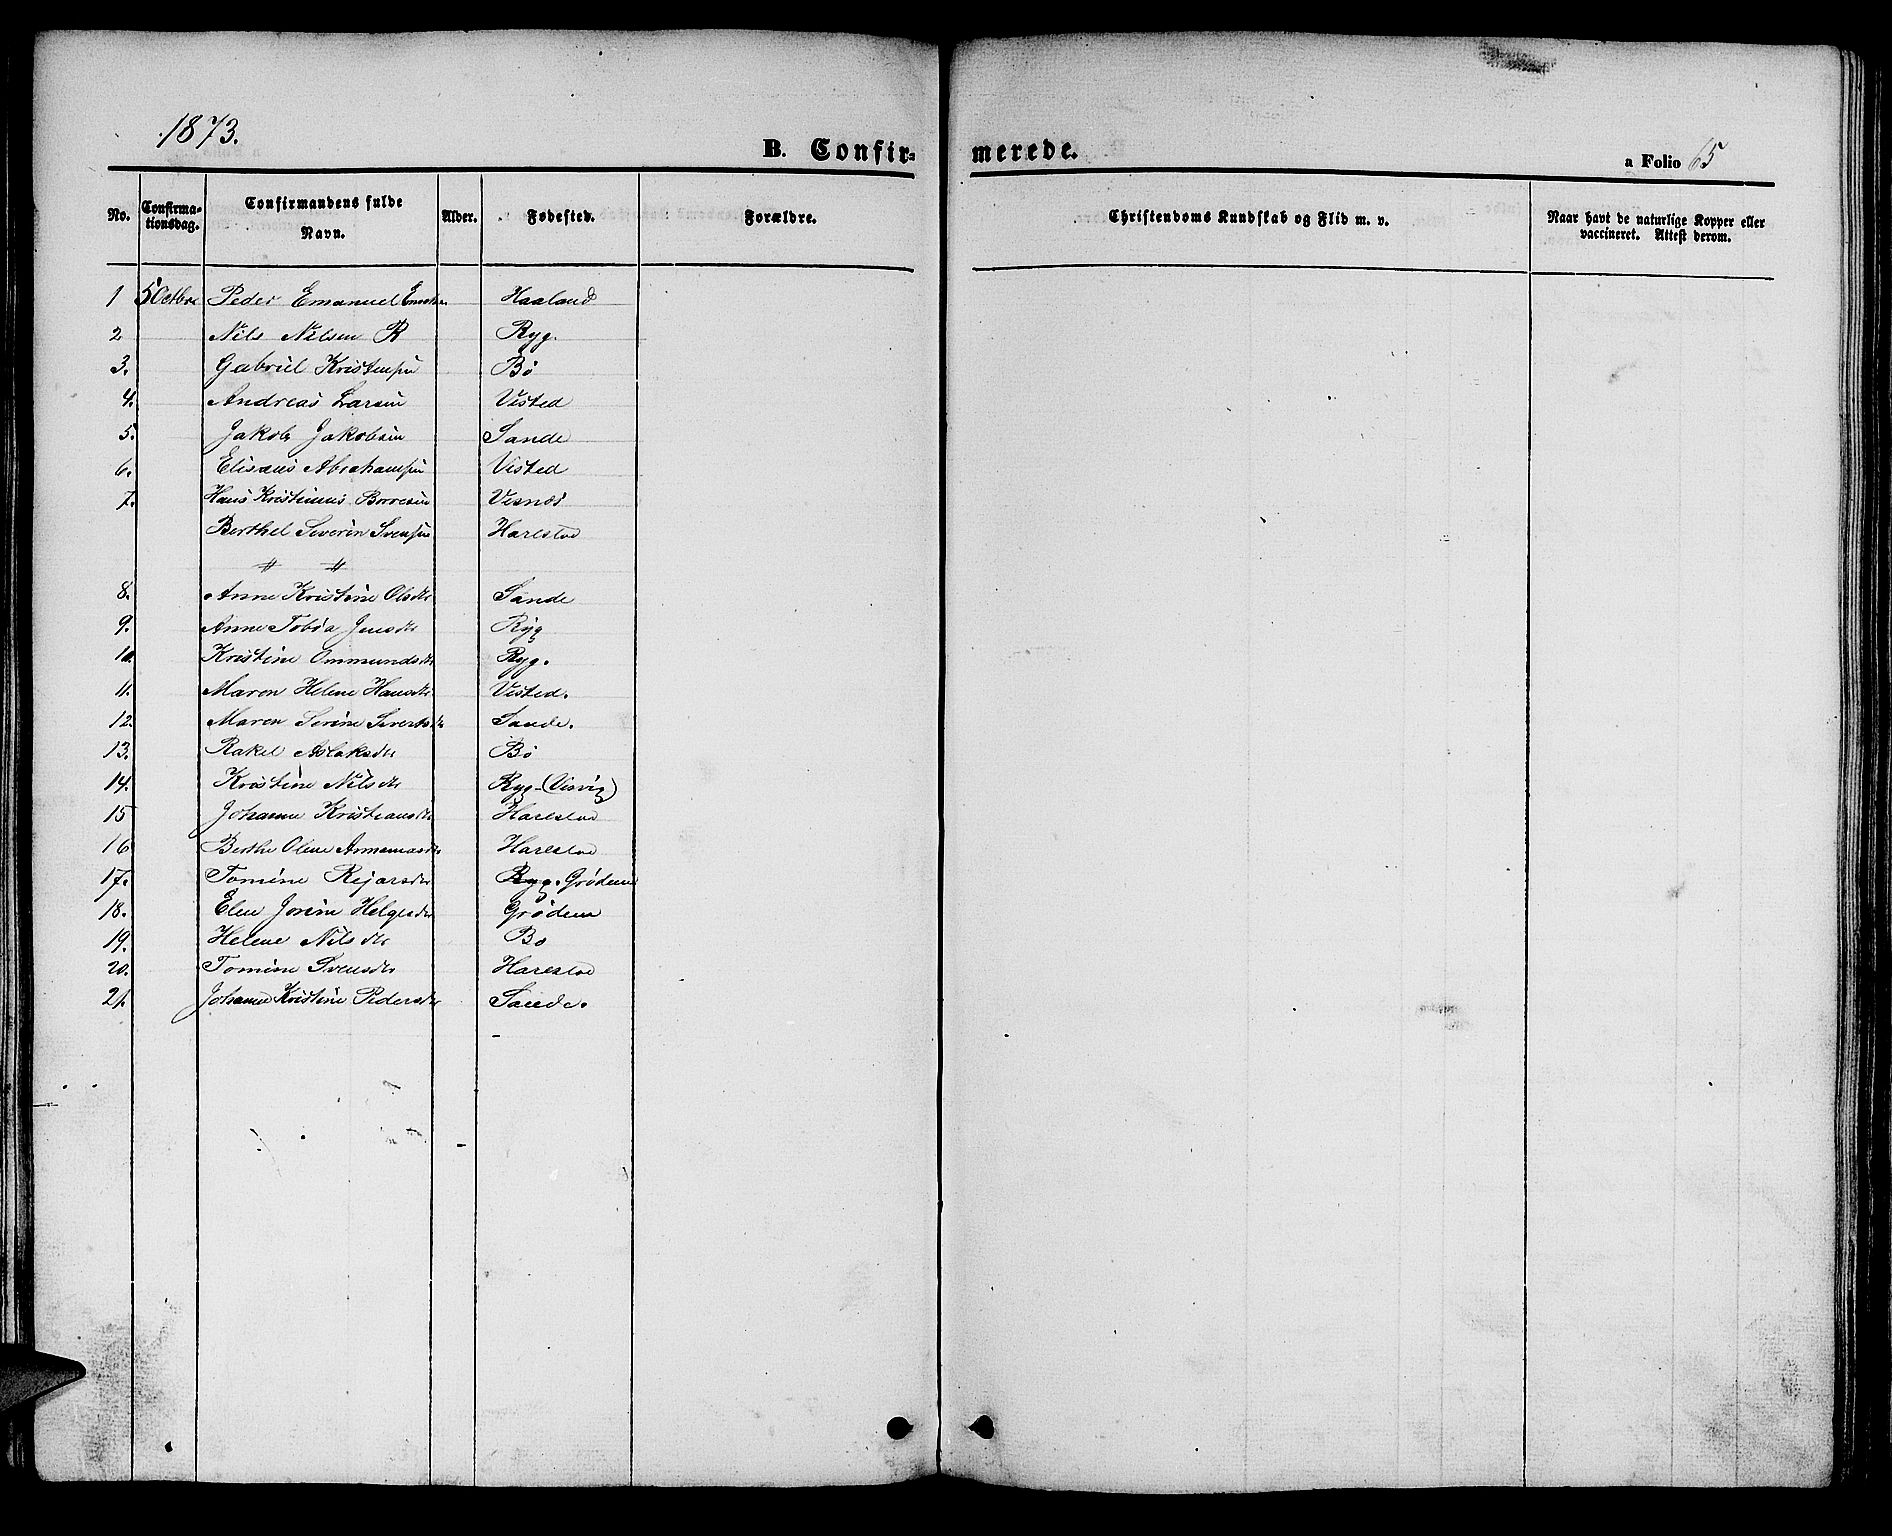 1873.
B. Confir-
merede.
a Folio 65
No.
Confirma-
tionsdag.
Confirmandens fulde
Navn.
Alder.
Fødested.
Forældre.
Christendoms Kundskab og Flid m. v.
Naar havt de naturlige Kopper eller
vaccineret. Attest derom.
1 5 Octbre Peder Emanuel Haaland
2 Nils Nilsen R Ryg.
3. Gabriel Kristensen Bö
4. Andreas Larsen Visted
5. Jakob Jakobsen Sande
6. Elisæus Abrahamsen Visted
7. Hans Kristinius Borresen Visnæs
Berthel Severin Svensen Harestad
" "
8. Anne Kristine Olsdtr Sande
9. Anne Tobia Jensdtr Ryg
10 Kristine Ommundsdtr Ryg.
11. Maren Helene Hansdtr Visted.
12. Maren Serine Sivertsdtr Sande.
13. Rakel Aslaksdtr Bö
14. Kristine Nilsdtr Ryg-(Visvig)
15 Johanne Kristiansdtr Harestad
16 Berthe Oline Harestad
17. Tomine Rejarsdtr Ryg. Grödem
18. Elen Jorine Helgesdtr Grödem
19. Helene Nilsdtr Bo
20. Tomine Svensdtr Harestad
21. Johanne Kristine Pedersdtr Sande.